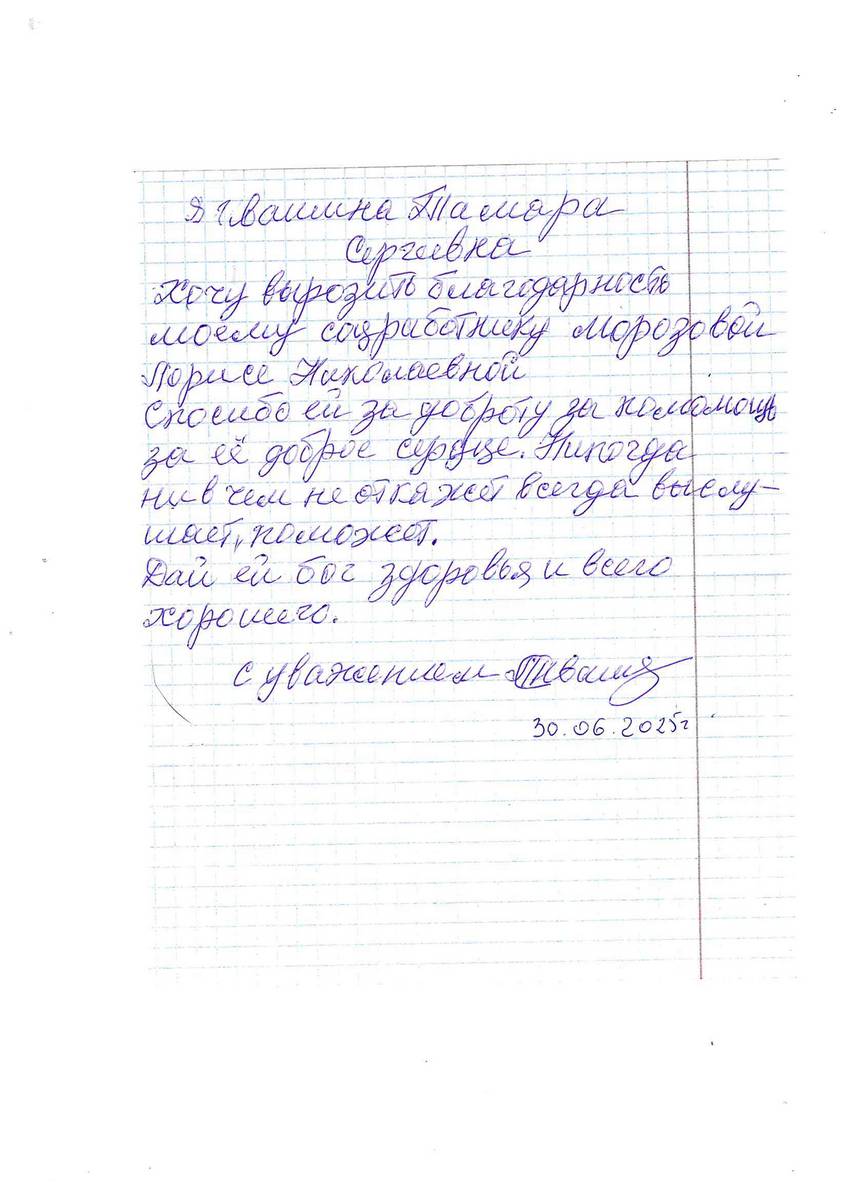 Я Ивашина Тамара
Сергеевна
Хочу вырозить благодарность
моему соцработнику Морозовой
Ларисе Николаевной
Спосибо ей за доброту за помомощь
за её доброе сердце. Никогда
ни в чем не откажет всегда выслу-
шает, поможет.
Дай ей бог здоровья и всего
хорошего.
С уважением
30.06.2025г